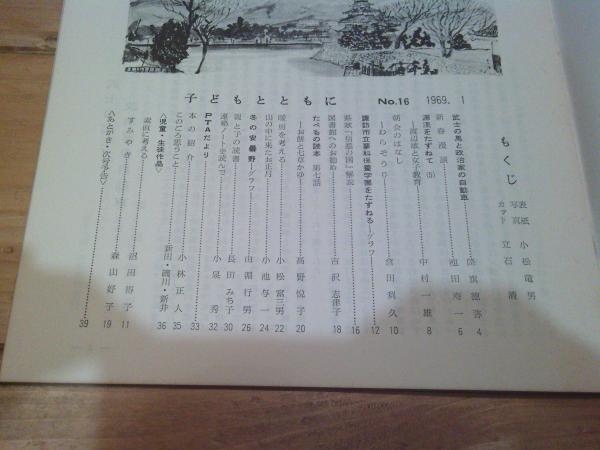 子どもとともに
No.16 1969. 1
もくじ
表紙 小松竜男
写真
カット 立石清
武士の馬と政治家の自動車 4
新春漫談 池田寿一 6
源流をたずねて(5)
―渡辺敏と女子教育 中村一雄 8
朝会のはなし
―わらぞうり 倉田利久 10
諏訪市立蓼科保養学園をたずねる―グラフ― 12
県歌「信濃の国」解説 16
図書館へのお勧め 吉沢志津子 18
たべもの読本 第七話
―お餅と七草かゆ 高野悦子 20
暖房を考える 小松富三男 22
山の中に来たお正月 小池与一 24
冬の安曇野―グラフ― 田淵行男 26
親と子の読書 長田みち子 30
連絡ノートを読んで 小泉秀 32
PTAだより 33
本の紹介
このごろ思うこと 小林正人 35
〈児童・生徒作品〉 新田・磯川・新井 36
素直に考える 沼田容子 11
すみやき 森山好子 19
〈あとがき・次号予告〉 39